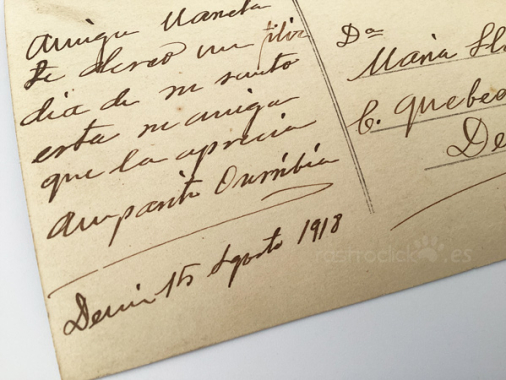 Amiga
Le deseo un feliz
dia de su santo
esta su amiga
que la aprecia
Amparito
Denia 15 Agosto 1918
Dª
Maria
C. Quebe
De
rastroclick.es